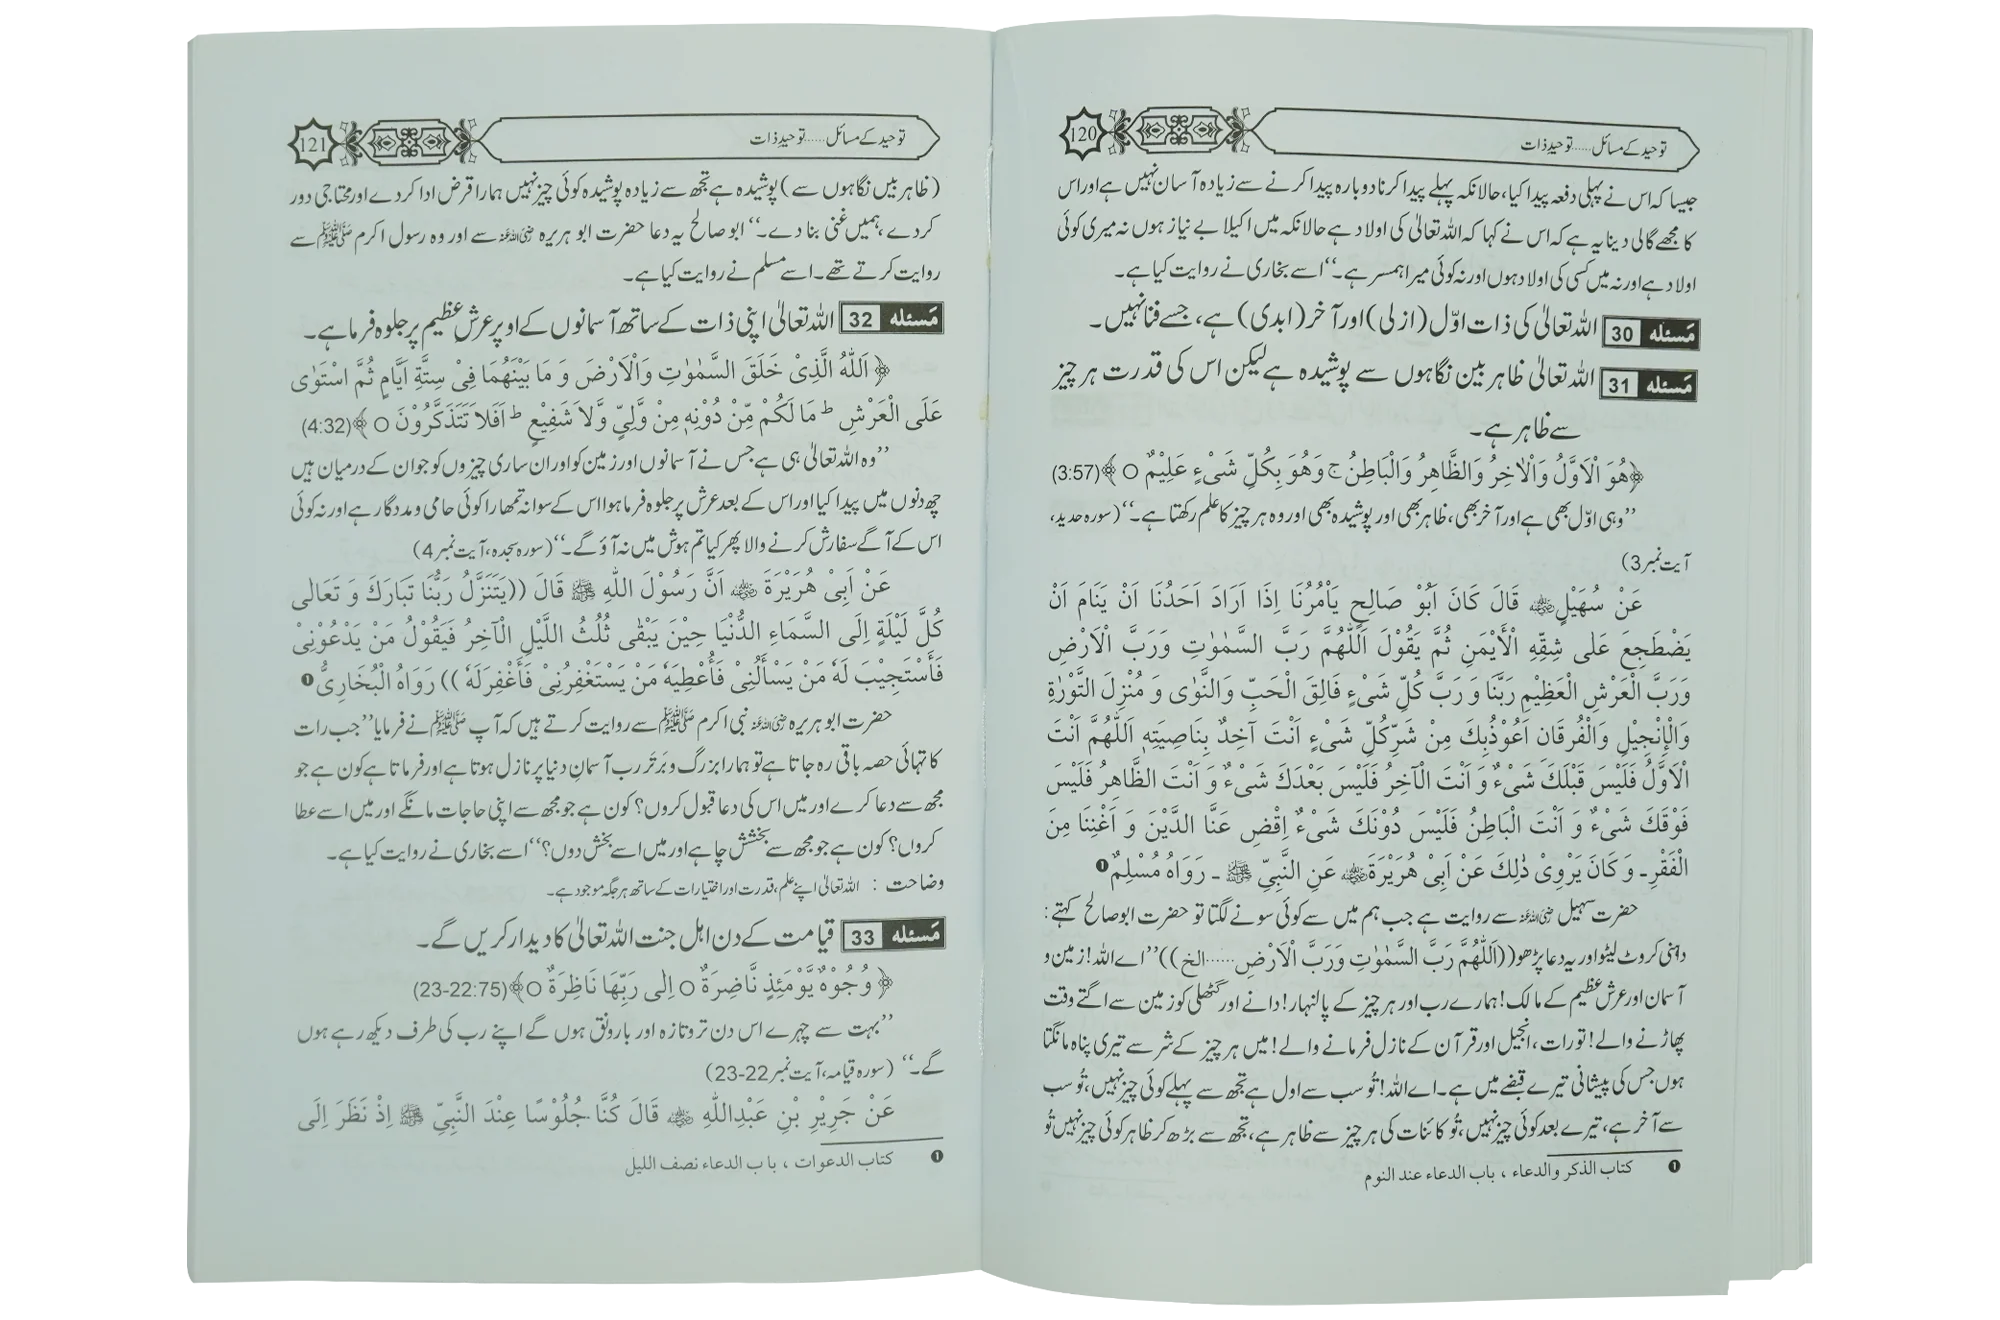 توحید کے مسائل.....توحیدِ ذات
120
جیسا کہ اس نے پہلی دفعہ پیدا کیا، حالانکہ پہلے پیدا کرنا دوبارہ پیدا کرنے سے زیادہ آسان نہیں ہے اور اس
کا مجھے گالی دینا یہ ہے کہ اس نے کہا کہ اللہ تعالیٰ کی اولاد ہے حالانکہ میں اکیلا بے نیاز ہوں نہ میری کوئی
اولاد ہے اور نہ میں کسی کی اولاد ہوں اور نہ کوئی میرا ہمسر ہے۔‘‘ اسے بخاری نے روایت کیا ہے۔
مَسئلہ 30 اللہ تعالیٰ کی ذات اوّل (ازلی) اور آخر (ابدی) ہے، جسے فنا نہیں۔
مَسئلہ 31 اللہ تعالیٰ ظاہر بین نگاہوں سے پوشیدہ ہے لیکن اس کی قدرت ہر چیز
سے ظاہر ہے۔
﴿هُوَ الْاَوَّلُ وَالْاٰخِرُ وَالظَّاهِرُ وَالْبَاطِنُ ج وَهُوَ بِكُلِّ شَىْءٍ عَلِيْمٌ ○ ﴾(3:57)
’’وہی اوّل بھی ہے اور آخر بھی، ظاہر بھی اور پوشیدہ بھی اور وہ ہر چیز کا علم رکھتا ہے۔‘‘ (سورہ حدید،
آیت نمبر3)
عَنْ سُهَيْلٍ ؓ قَالَ كَانَ اَبُوْ صَالِحٍ يَأْمُرُنَا اِذَا اَرَادَ اَحَدُنَا اَنْ يَنَامَ اَنْ
يَضْطَجِعَ عَلٰى شِقِّهِ الْأَيْمَنِ ثُمَّ يَقُوْلَ اَللّٰهُمَّ رَبَّ السَّمٰوٰتِ وَرَبَّ الْاَرْضِ
وَرَبَّ الْعَرْشِ الْعَظِيْمِ رَبَّنَا وَ رَبَّ كُلِّ شَىْءٍ فَالِقَ الْحَبِّ وَالنَّوٰى وَ مُنْزِلَ التَّوْرٰةِ
وَالْإِنْجِيْلِ وَالْفُرقَانِ اَعُوْذُبِكَ مِنْ شَرِّكُلِّ شَىْءٍ اَنْتَ آخِذٌ بِنَاصِيَتِهٖ اَللّٰهُمَّ اَنْتَ
الْاَوَّلُ فَلَيْسَ قَبْلَكَ شَىْءٌ وَ اَنْتَ الْآخِرُ فَلَيْسَ بَعْدَكَ شَىْءٌ وَ اَنْتَ الظَّاهِرُ فَلَيْسَ
فَوْقَكَ شَىْءٌ وَ اَنْتَ الْبَاطِنُ فَلَيْسَ دُوْنَكَ شَىْءٌ اِقْضِ عَنَّا الدَّيْنَ وَ اَغْنِنَا مِنَ
الْفَقْرِ۔ وَ كَانَ يَرْوِىْ ذٰلِكَ عَنْ اَبِىْ هُرَيْرَةَ ؓ عَنِ النَّبِىِّ ﷺ ۔ رَوَاهُ مُسْلِمٌ ❶
حضرت سہیل رضی اللہ عنہ سے روایت ہے جب ہم میں سے کوئی سونے لگتا تو حضرت ابو صالح کہتے:
داہنی کروٹ لیٹو اور یہ دعا پڑھو ((اَللّٰهُمَّ رَبَّ السَّمٰوٰتِ وَرَبَّ الْاَرْضِ......الخ))’’اے اللہ! زمین و
آسمان اور عرش عظیم کے مالک! ہمارے رب اور ہر چیز کے پالنہار! دانے اور گٹھلی کو زمین سے اگتے وقت
پھاڑنے والے! تورات، انجیل اور قرآن کے نازل فرمانے والے! میں ہر چیز کے شر سے تیری پناہ مانگتا
ہوں جس کی پیشانی تیرے قبضے میں ہے۔ اے اللہ! تُو سب سے اول ہے تجھ سے پہلے کوئی چیز نہیں، تُو سب
سے آخر ہے، تیرے بعد کوئی چیز نہیں، تُو کائنات کی ہر چیز سے ظاہر ہے، تجھ سے بڑھ کر ظاہر کوئی چیز نہیں تُو
❶ کتاب الذکر والدعاء ، باب الدعاء عند النوم
توحید کے مسائل.....توحیدِ ذات
121
(ظاہر بیں نگاہوں سے) پوشیدہ ہے تجھ سے زیادہ پوشیدہ کوئی چیز نہیں ہمارا قرض ادا کر دے اور محتاجی دور
کر دے ، ہمیں غنی بنا دے۔‘‘ ابو صالح یہ دعا حضرت ابو ہریرہ رضی اللہ عنہ سے اور وہ رسول اکرم ﷺ سے
روایت کرتے تھے۔ اسے مسلم نے روایت کیا ہے۔
مَسئلہ 32 اللہ تعالیٰ اپنی ذات کے ساتھ آسمانوں کے اوپر عرشِ عظیم پر جلوہ فرما ہے۔
﴿ اَللّٰهُ الَّذِىْ خَلَقَ السَّمٰوٰتِ وَالْاَرْضَ وَ مَا بَيْنَهُمَا فِىْ سِتَّةِ اَيَّامٍ ثُمَّ اسْتَوٰى
عَلَى الْعَرْشِ ط مَا لَكُمْ مِّنْ دُوْنِهٖ مِنْ وَّلِىٍّ وَّلاَ شَفِيْعٍ ط اَفَلاَ تَتَذَكَّرُوْنَ ○ ﴾(4:32)
’’وہ اللہ تعالیٰ ہی ہے جس نے آسمانوں اور زمین کو اور ان ساری چیزوں کو جو ان کے درمیان ہیں
چھ دنوں میں پیدا کیا اور اس کے بعد عرش پر جلوہ فرما ہوا اس کے سوا نہ تمھارا کوئی حامی و مددگار ہے اور نہ کوئی
اس کے آگے سفارش کرنے والا پھر کیا تم ہوش میں نہ آؤ گے۔‘‘ (سورہ سجدہ، آیت نمبر4)
عَنْ اَبِىْ هُرَيْرَةَ ؓ اَنَّ رَسُوْلَ اللهِ ﷺ قَالَ ((يَتَنَزَّلُ رَبُّنَا تَبَارَكَ وَ تَعَالٰى
كُلَّ لَيْلَةٍ اِلَى السَّمَاءِ الدُّنْيَا حِيْنَ يَبْقٰى ثُلُثُ اللَّيْلِ الْآخِرُ فَيَقُوْلُ مَنْ يَدْعُوْنِىْ
فَأَسْتَجِيْبَ لَهٗ مَنْ يَسْأَلُنِىْ فَأُعْطِيَهٗ مَنْ يَسْتَغْفِرُنِىْ فَأَغْفِرَلَهٗ )) رَوَاهُ الْبُخَارِىُّ ❶
حضرت ابو ہریرہ رضی اللہ عنہ نبی اکرم ﷺ سے روایت کرتے ہیں کہ آپ ﷺ نے فرمایا ’’جب رات
کا تہائی حصہ باقی رہ جاتا ہے تو ہمارا بزرگ و برتر رب آسمانِ دنیا پر نازل ہوتا ہے اور فرماتا ہے کون ہے جو
مجھ سے دعا کرے اور میں اس کی دعا قبول کروں؟ کون ہے جو مجھ سے اپنی حاجات مانگے اور میں اسے عطا
کروں؟ کون ہے جو مجھ سے بخشش چاہے اور میں اسے بخش دوں؟‘‘ اسے بخاری نے روایت کیا ہے۔
وضاحت : اللہ تعالیٰ اپنے علم، قدرت اور اختیارات کے ساتھ ہر جگہ موجود ہے۔
مَسئلہ 33 قیامت کے دن اہل جنت اللہ تعالیٰ کا دیدار کریں گے۔
﴿ وُجُوْهٌ يَّوْمَئِذٍ نَّاضِرَةٌ ○ اِلٰى رَبِّهَا نَاظِرَةٌ ○﴾(23-22:75)
’’بہت سے چہرے اس دن تر و تازہ اور بارونق ہوں گے اپنے رب کی طرف دیکھ رہے ہوں
گے۔‘‘ (سورہ قیامہ، آیت نمبر 22-23)
عَنْ جَرِيْرِ بْنِ عَبْدِاللهِ ؓ قَالَ كُنَّا جُلُوْسًا عِنْدَ النَّبِىِّ ﷺ اِذْ نَظَرَ اِلَى
❶ کتاب الدعوات ، باب الدعاء نصف الليل